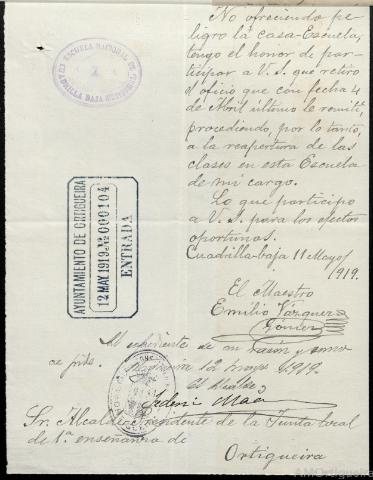 No ofreciendo pe-
ligro la casa-Escuela,
tengo el honor de par-
ticipar a V. S. que retiro
el oficio que con fecha 4
de Abril último le remití,
procediendo, por lo tanto,
a la reapertura de las
clases en esta Escuela
de mi cargo.
Lo que participo
a V. S. para los efectos
oportunos.
Cuadrilla-baja 11 Mayo
1919.
El Maestro
Emilio Vázquez
Gómez
ESCUELA NACIONAL DE
AYUNTAMIENTO DE ORTIGUEIRA
12 MAY. 1919 Nº 000104
ENTRADA
Al expediente de su razón y
12 mayo 1919.
El alcalde
Sr. Alcalde-Presidente de la Junta local
de 1ª enseñanza de
Ortigueira
AMOrtigueira